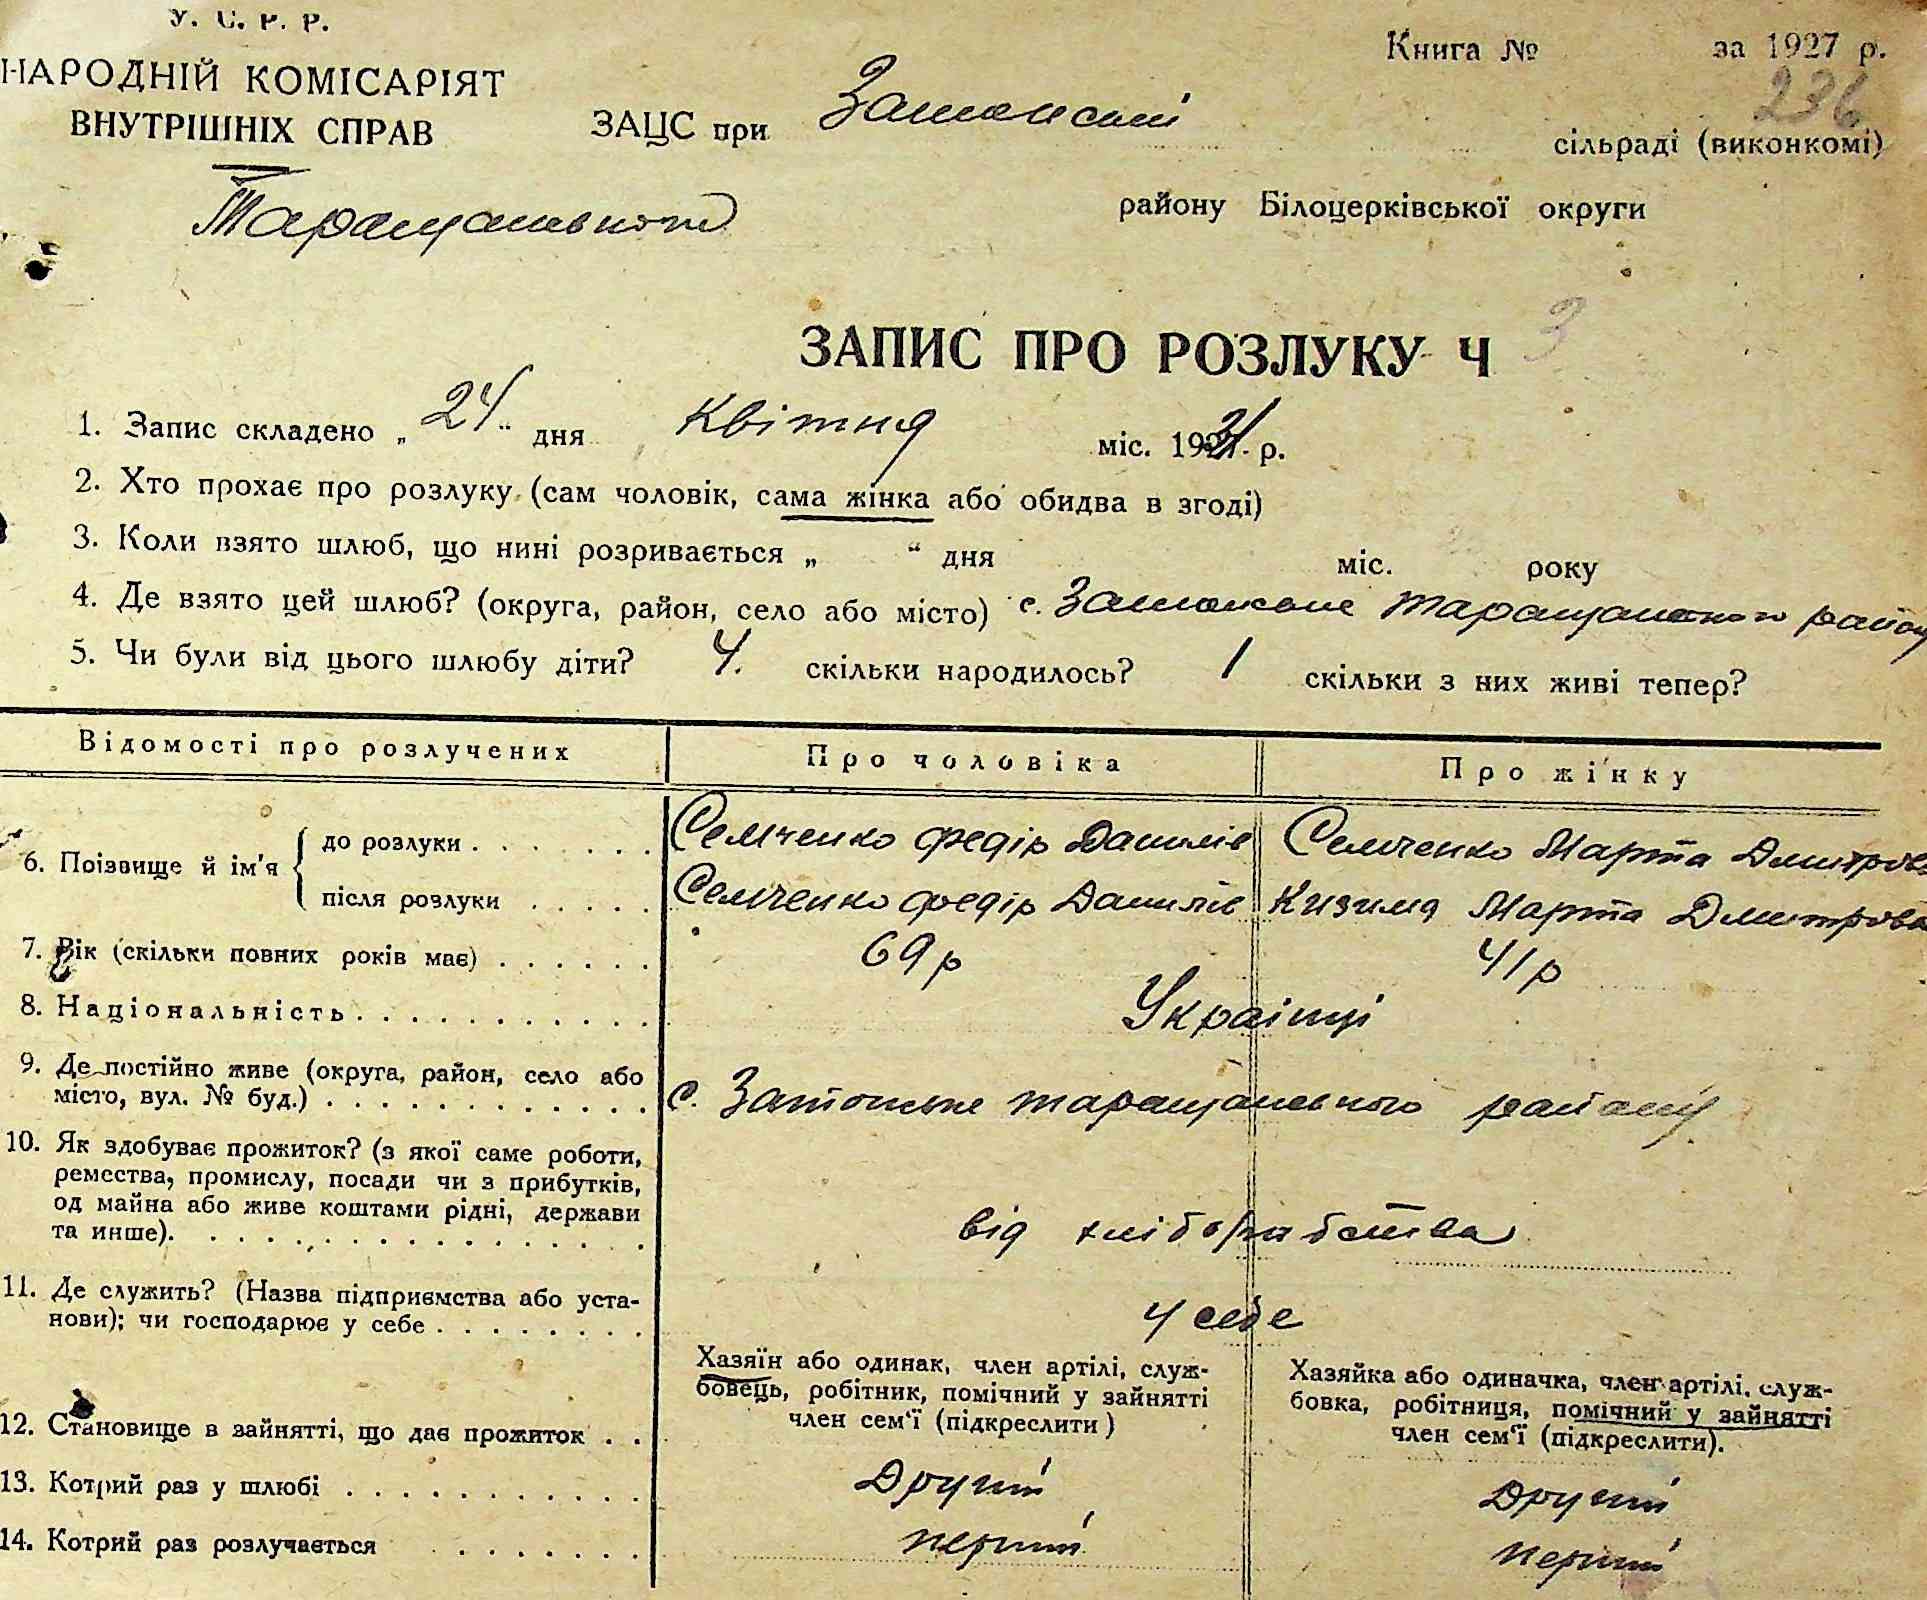 У. С. Р. Р.
НАРОДНІЙ КОМІСАРІЯТ
ВНУТРІШНІХ СПРАВ
Книга № за 1927 р.
236
ЗАЦС при Затонській сільраді (виконкомі)
Таращанського району Білоцерківської округи
ЗАПИС ПРО РОЗЛУКУ Ч 3
1. Запис складено „24“ дня Квітня міс. 192 р.
2. Хто прохає про розлуку (сам чоловік, сама жінка або обидва в згоді)
3. Коли взято шлюб, що нині розривається „ “ дня міс. року
4. Де взято цей шлюб? (округа, район, село або місто) с. Затонське Таращанського району
5. Чи були від цього шлюбу діти? 4. скільки народилось? 1 скільки з них живі тепер?
Відомості про розлучених Про чоловіка Про жінку
6. Поізвище й ім'я до розлуки Семченко Федір Данилів Семченко Марта Дмитрова
після розлуки Семченко Федір Данилів Кизима Марта Дмитрова
7. Вік (скільки повних років має) 69 р 41 р
8. Національність Українці
9. Де постійно живе (округа, район, село або
місто, вул. № буд.) с. Затонське таращанського району.
10. Як здобуває прожиток? (з якої саме роботи,
ремества, промислу, посади чи з прибутків,
од майна або живе коштами рідні, держави
та инше). від хліборобства
11. Де служить? (Назва підприємства або уста-
нови); чи господарює у себе У себе
Хазяїн або одинак, член артілі, служ-
бовець, робітник, помічний у зайнятті
член сем'ї (підкреслити)
Хазяйка або одиначка, член артілі, служ-
бовка, робітниця, помічний у зайнятті
член сем'ї (підкреслити).
12. Становище в зайнятті, що дає прожиток
13. Котрий раз у шлюбі Другий Другий
14. Котрий раз розлучається перший перший